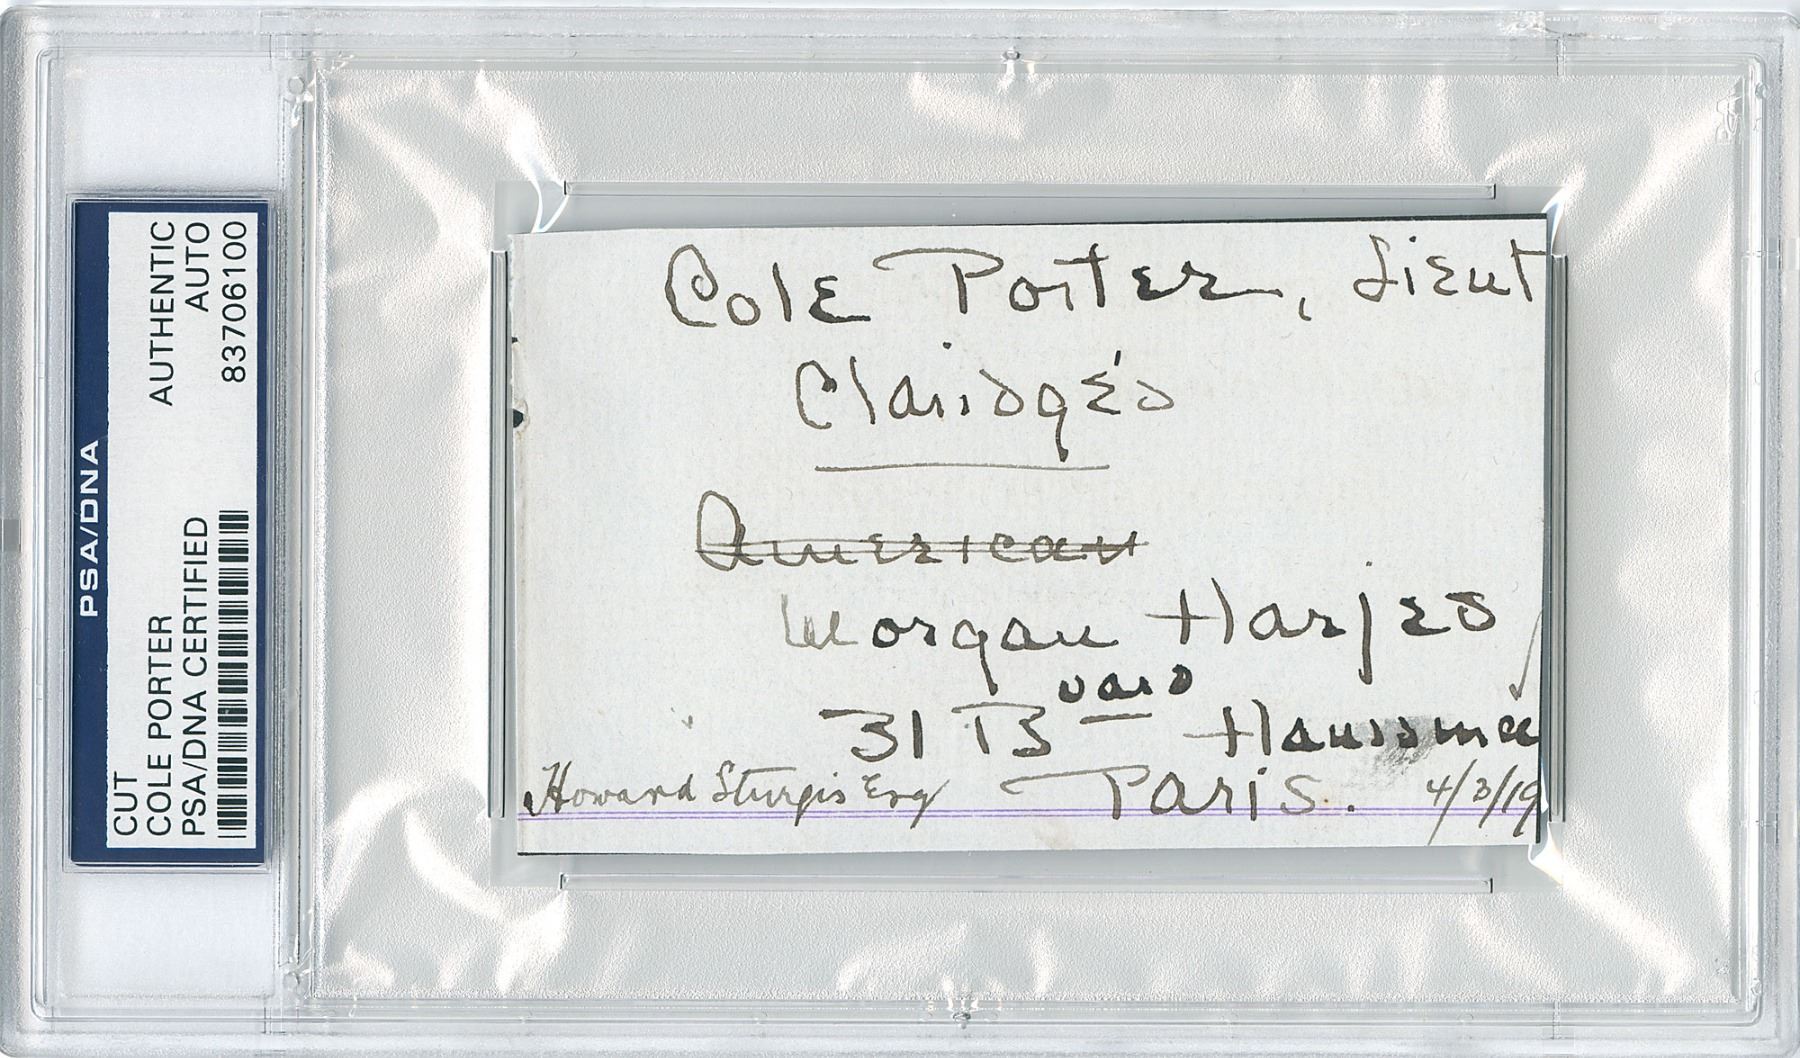 PSA/DNA
CUT AUTHENTIC
COLE PORTER AUTO
PSA/DNA CERTIFIED
83706100
Cole Porter, Lieut
Claridge's
American
Morgan Harjes
31 Bvard Haussma
Howard Sturgis Esq Paris. 4/3/19